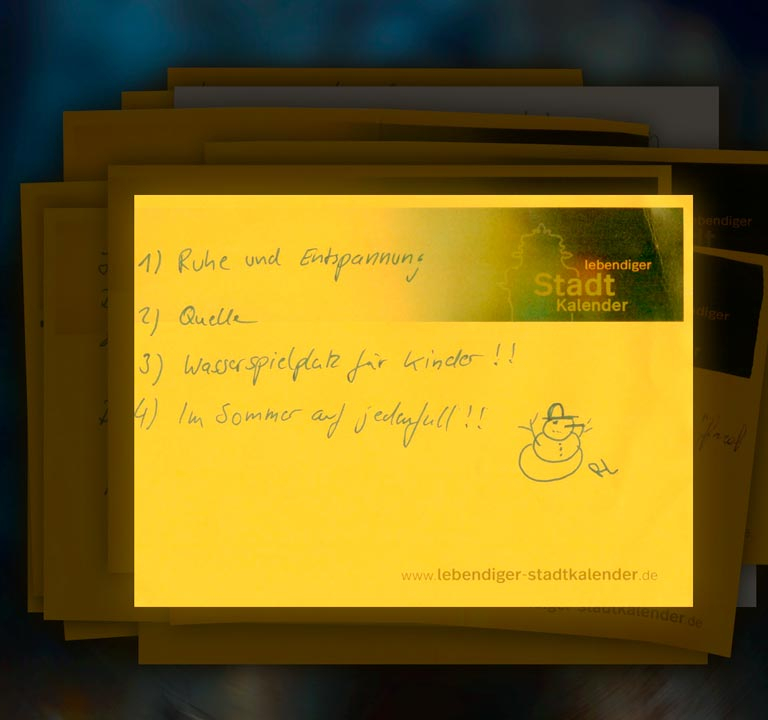 1) Ruhe und Entspannung
lebendiger
Stadt
Kalender
2) Quelle
3) Wasserspielplatz für Kinder !!
4) Im Sommer auf jedenfall !!
www.lebendiger-stadtkalender.de
lebendiger
stadtkalender.de